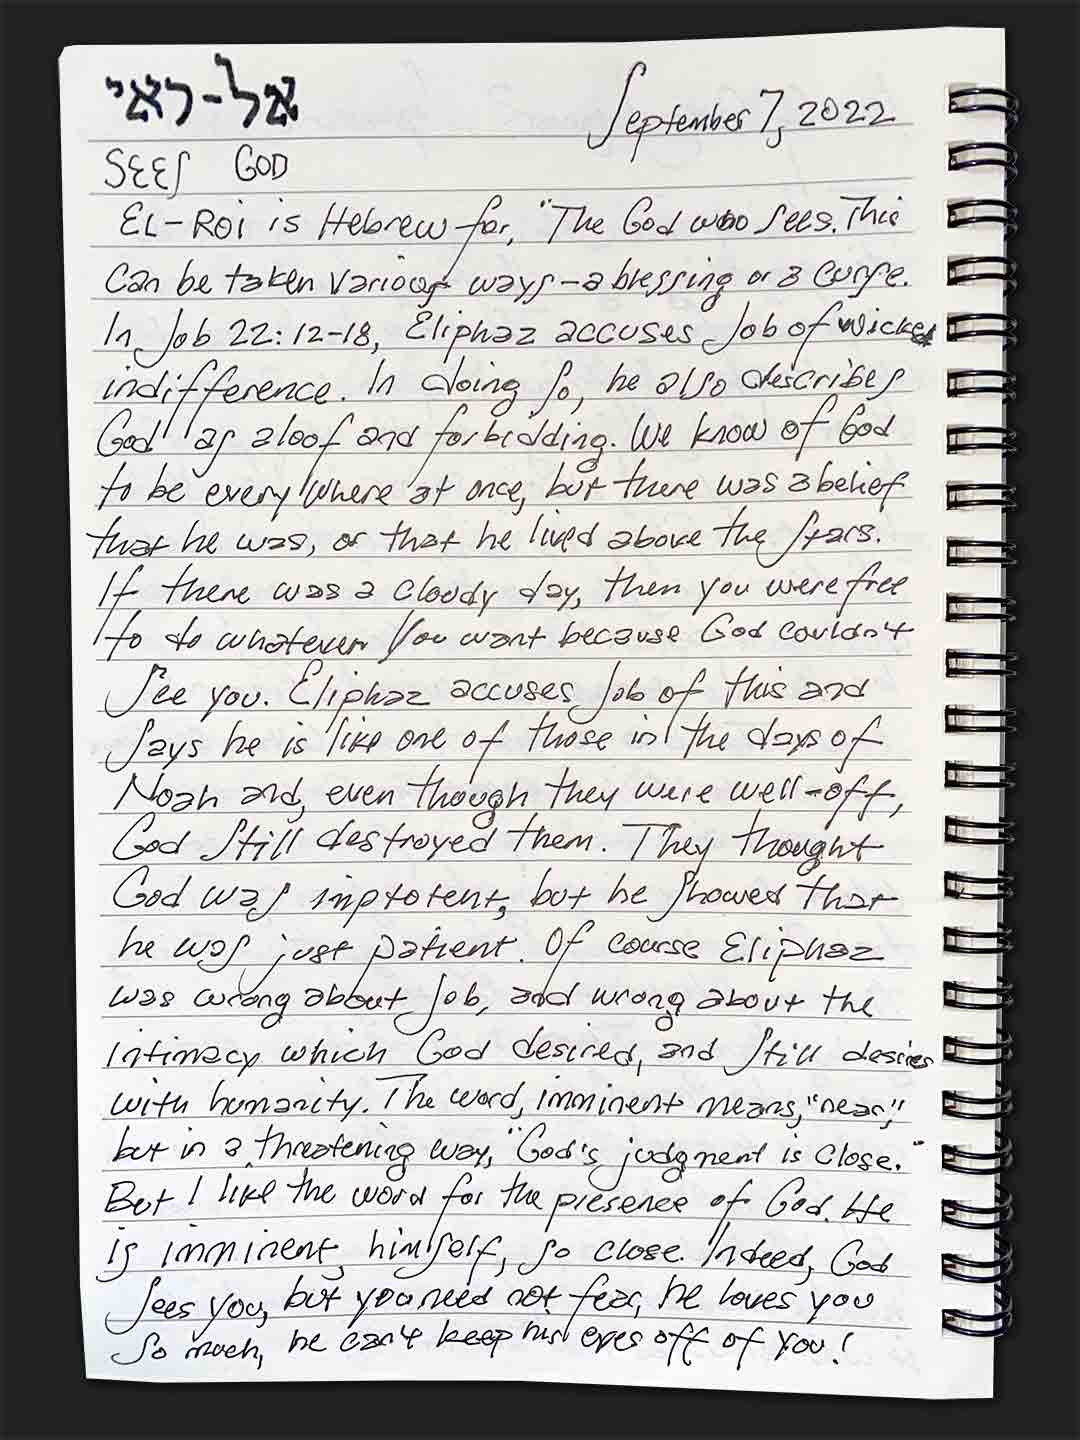 אל-ראי
September 7, 2022
SEES GOD
EL-ROi is Hebrew for, "The God who sees. This
can be taken various ways - a blessing or a curse.
In Job 22:12-18, Eliphaz accuses Job of wicked
indifference. In doing so, he also describes
God as aloof and forbidding. We know of God
to be everywhere at once, but there was a belief
that he was, or that he lived above the stars.
If there was a cloudy day, then you were free
to do whatever you want because God couldn't
see you. Eliphaz accuses Job of this and
says he is like one of those in the days of
Noah and, even though they were well-off,
God still destroyed them. They thought
God was inptotent, but he showed that
he was just patient. Of course Eliphaz
was wrong about Job, and wrong about the
intimacy which God desired, and still desires
with humanity. The word, imminent means, "near,"
but in a threatening way, "God's judgment is close."
But I like the word for the presence of God. He
is imminent, himself, so close. Indeed, God
sees you, but you need not fear, he loves you
so much, he can't keep his eyes off of you!